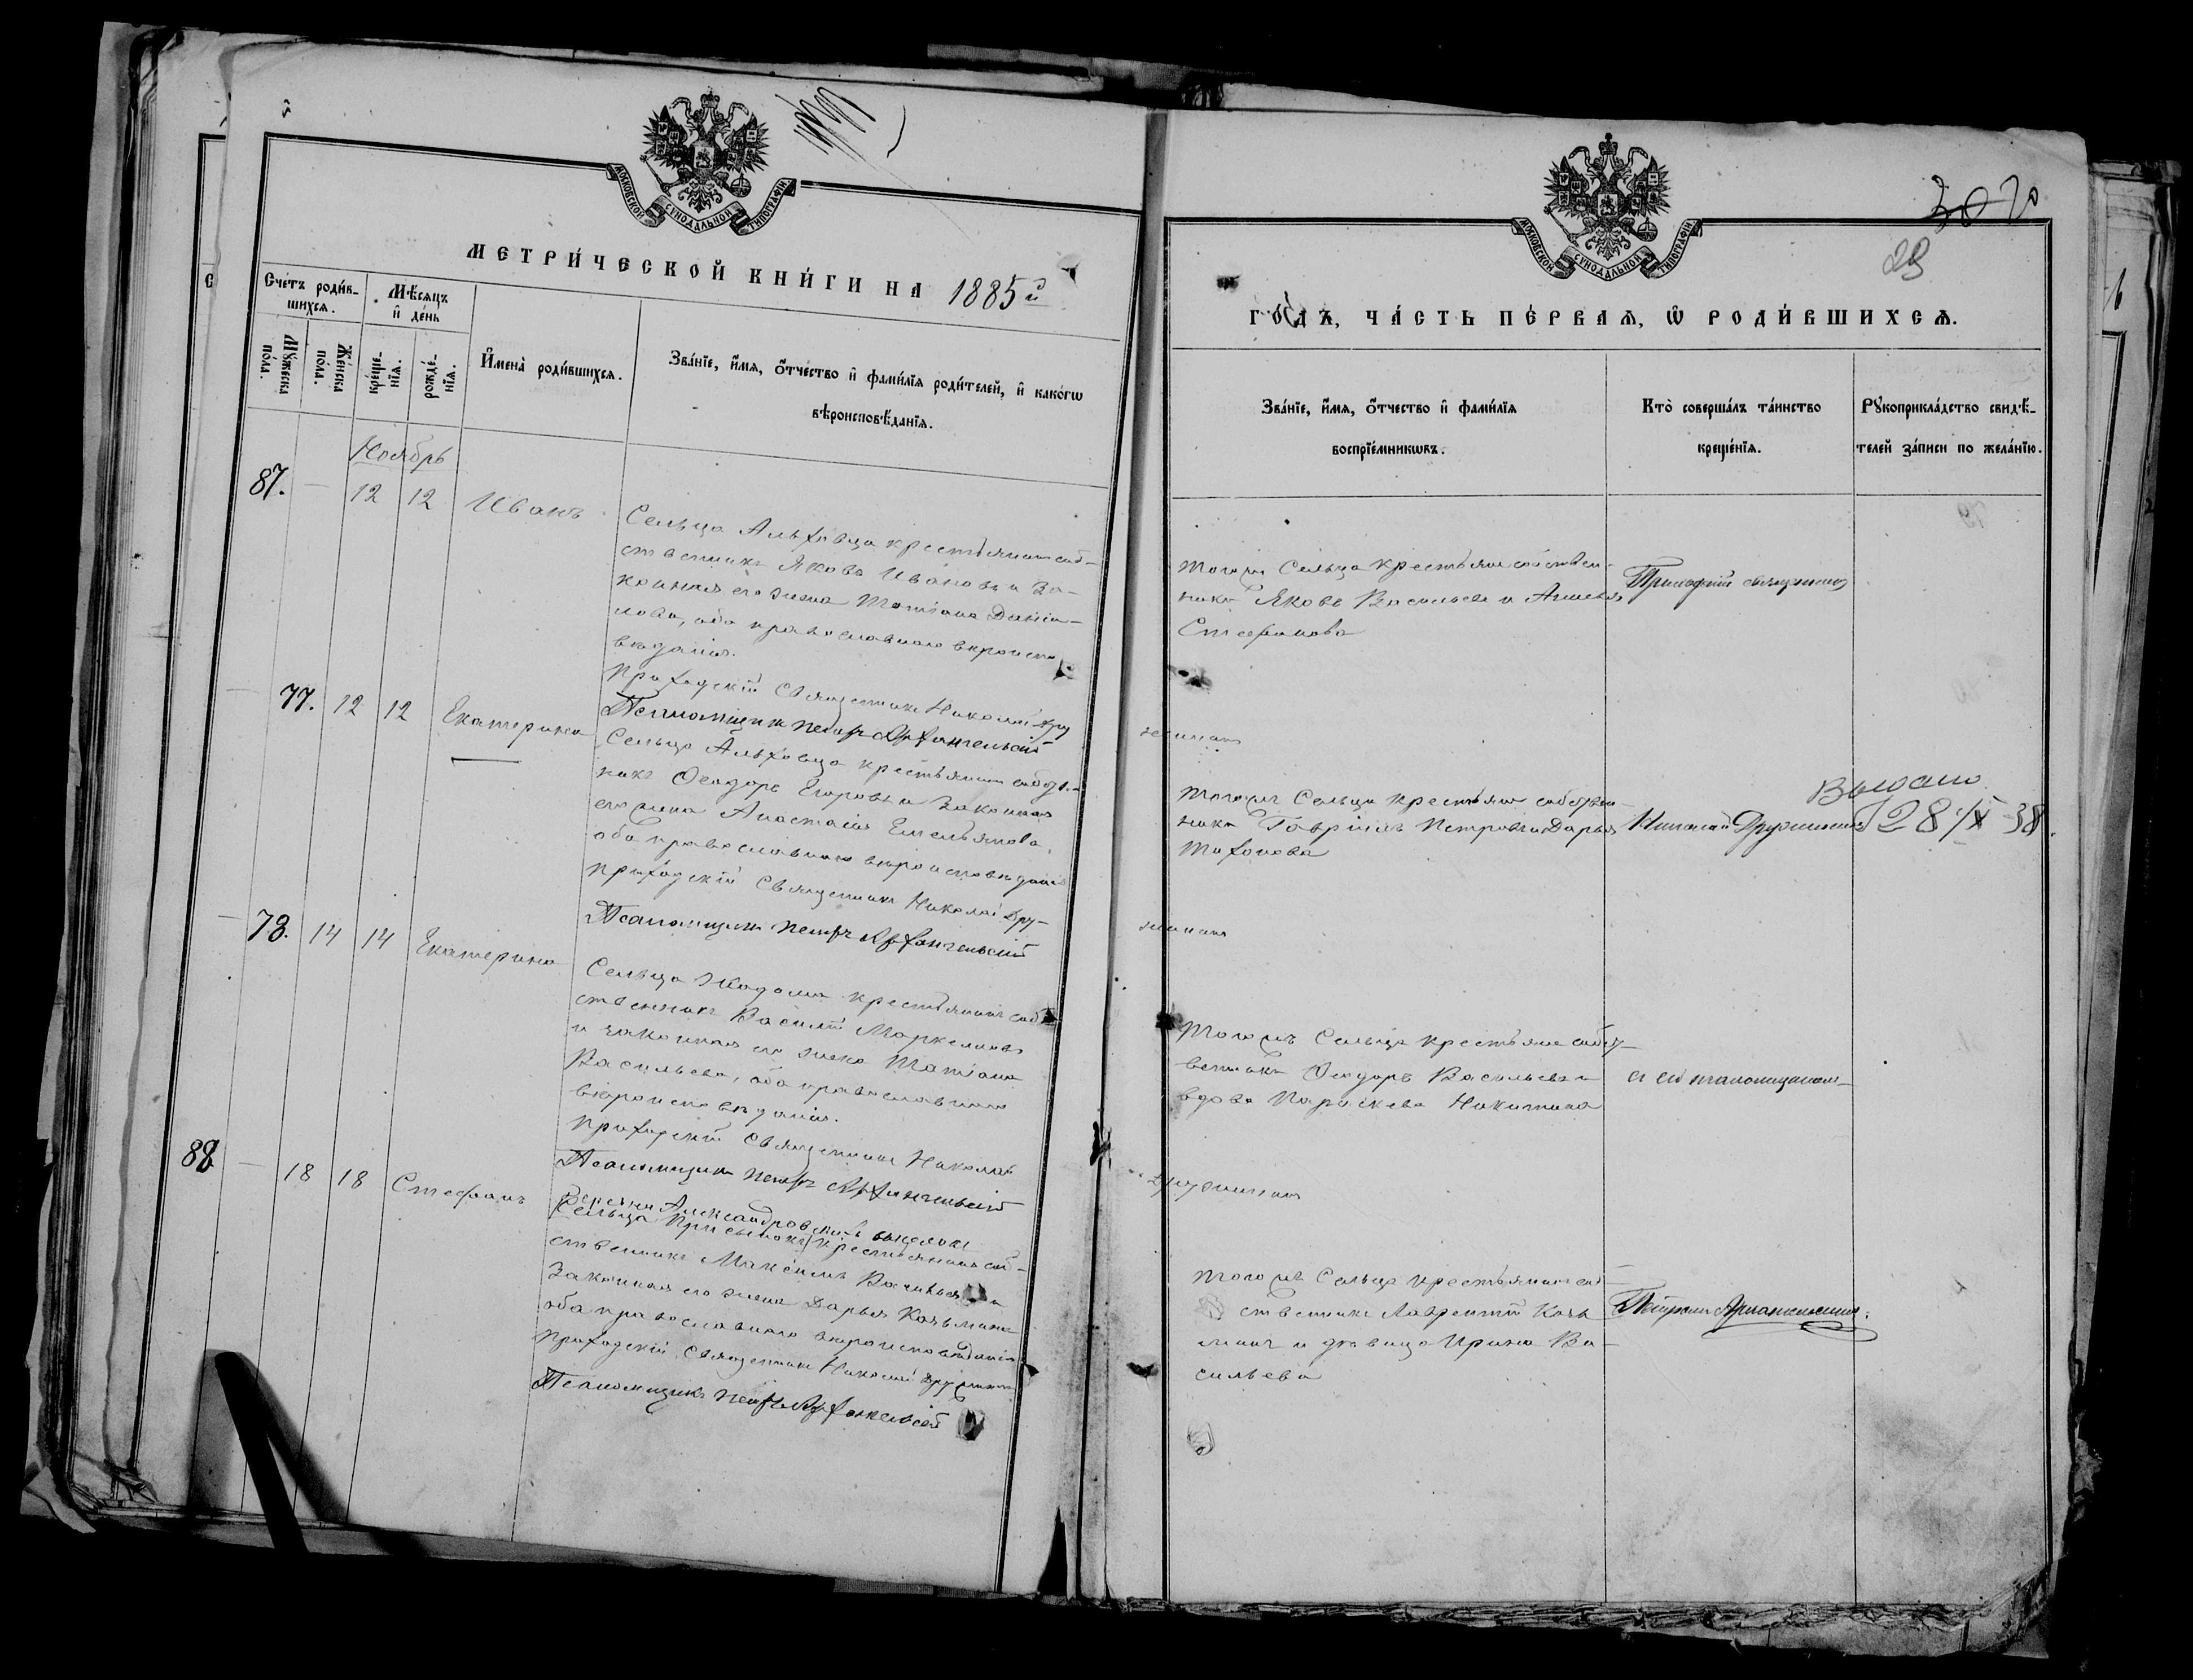 МОСКОВСКОЙ СУНОДАЛЬНОЙ ТИПОГРАФІИ
МЕТРИ́ЧЕСКОЙ КНИ́ГИ НА 1885й
Счетъ роди́в-
шихсѧ.
Мѣ́сѧцъ
и҆ де́нь
Мꙋ́жеска
по́ла.
Же́нска
по́ла.
креще́-
нїѧ.
рожде́-
нїѧ.
И҆мена̀ роди́вшихсѧ.
Зва́нїе, и҆́мѧ, ѻ҆́тчество и҆ фами́лїѧ роди́телей, и҆ како́гѡ
вѣроисповѣ́данїѧ.
Ноябрь
87. — 12 12 Иванъ
Сельца Альховца крестьянинъ соб-
ственникъ Яковъ Ивановъ и За-
конная его жена Татіана Даніи-
лова, оба православнаго вѣроиспо-
вѣданія.
Приходскій Священникъ Николай Дру
Псаломщикъ Петръ Архангельскій
— 77. 12 12 Екатерина
Сельца Альховца крестьянинъ собств.-
никъ Ѳеодоръ Егоровъ и Законная
его жена Анастасія Емельянова,
оба православнаго вѣроисповѣданія
Приходскій Священникъ Николай Дру-
Псаломщикъ Петръ Архангельскій
— 78. 14 14 Екатерина
Сельца крестьянинъ соб
ственникъ Василій Маркелловъ
и законная его жена Татіана
Васильева, оба православнаго
вѣроисповѣданія.
Приходскій Священникъ Николай
Псаломщикъ Петръ Архангельскій
88 — 18 18 Стефанъ
Деревни Александровскихъ
Сельца крестьянинъ соб-
ственникъ Максимъ Васильевъ и
Законная его жена Дарья Козьмина
оба православнаго вѣроисповѣданія
Приходскій Священникъ Николай Дружининъ
Псаломщикъ Петръ Архангельскій
МОСКОВСКОЙ СУНОДАЛЬНОЙ ТИПОГРАФІИ
29
ГО́ДЪ, ЧА́СТЬ ПЕ́РВАѦ, Ѡ҆ РОДИ́ВШИХСѦ.
Зва́нїе, и҆́мѧ, ѻ҆́тчество и҆ фами́лїѧ
воспрїе́мникѡвъ.
Кто̀ соверша́лъ та́инство
креще́нїѧ.
Рꙋкоприкла́дство свидѣ́-
телей за́писи по жела́нїю.
Тогожъ Сельца крестьяне собствен-
никъ Яковъ Васильевъ и
Стефанова
Приходскій священникъ
жининъ
Тогожъ Сельца крестьяне собствен-
никъ Гавріилъ Петровъ и Дарья
Николай Дружининъ
Выдано
28/IX-38.
жининъ
Тогожъ Сельца крестьяне собст-
венникъ Ѳеодоръ Васильевъ и
вдова Параскева Никитина
съ псаломщикомъ
Дружининъ
Тогожъ Сельца крестьянинъ соб-
ственникъ Лаврентій Козь
минъ и дѣвица Ирина Ва-
сильева
Петромъ Архангельскимъ.